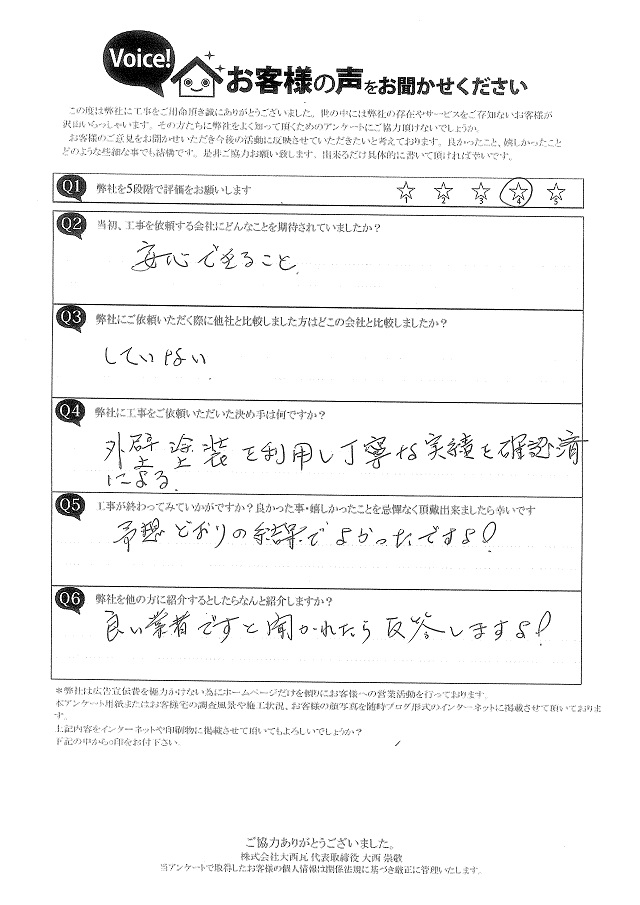 Voice!
お客様の声をお聞かせください
この度は弊社に工事をご用命頂き誠にありがとうございました。世の中には弊社の存在やサービスをご存知ないお客様が
沢山いらっしゃいます。その方たちに弊社をよく知って頂くためのアンケートにご協力頂けないでしょうか。
お客様のご意見をお聞かせいただき今後の活動に反映させていただきたいと考えております。良かったこと、嬉しかったこと
どのような些細な事でも結構です。是非ご協力お願い致します。出来るだけ具体的に書いて頂ければ幸いです。
Q1 弊社を5段階で評価をお願いします ☆1 ☆2 ☆3 ☆4 ☆5
Q2 当初、工事を依頼する会社にどんなことを期待されていましたか?
安心できること
Q3 弊社にご依頼いただく際に他社と比較しました方はどこの会社と比較しましたか?
していない
Q4 弊社に工事をご依頼いただいた決め手は何ですか?
外壁塗装を利用し丁寧な実績を確認済
による.
Q5 工事が終わってみていかがですか?良かった事・嬉しかったことを忌憚なく頂戴出来ましたら幸いです
予想どおりの結果でよかったですよ!
Q6 弊社を他の方に紹介するとしたらなんと紹介しますか?
良い業者ですと聞かれたら反答しますよ!
*弊社は広告宣伝費を極力かけない為にホームページだけを頼りにお客様への営業活動を行っております。
*アンケート用紙またはお客様宅の調査風景や施工状況、お客様の顔写真を随時ブログ形式のインターネットに掲載させて頂いております。
す。
上記内容をインターネットや印刷物に掲載させて頂いてもよろしいでしょうか?
下記の中から○印をお付下さい。
ご協力ありがとうございました。
株式会社大西瓦 代表取締役 大西 崇敬
当アンケートで取得したお客様の個人情報は関係法規に基づき厳正に管理いたします。